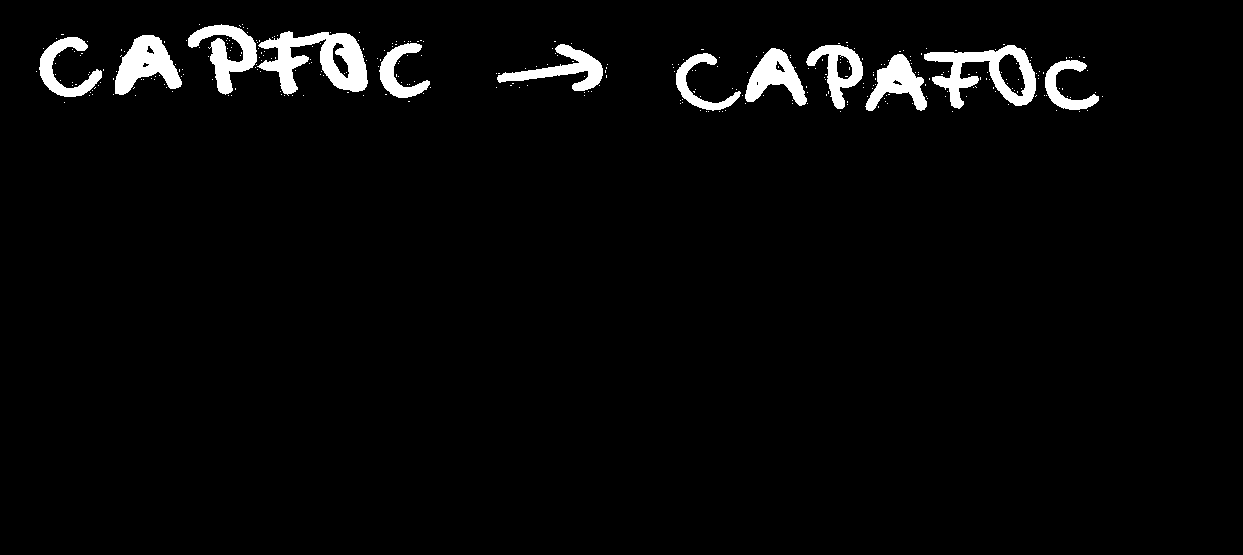 CAPFOC → CAPAFOC